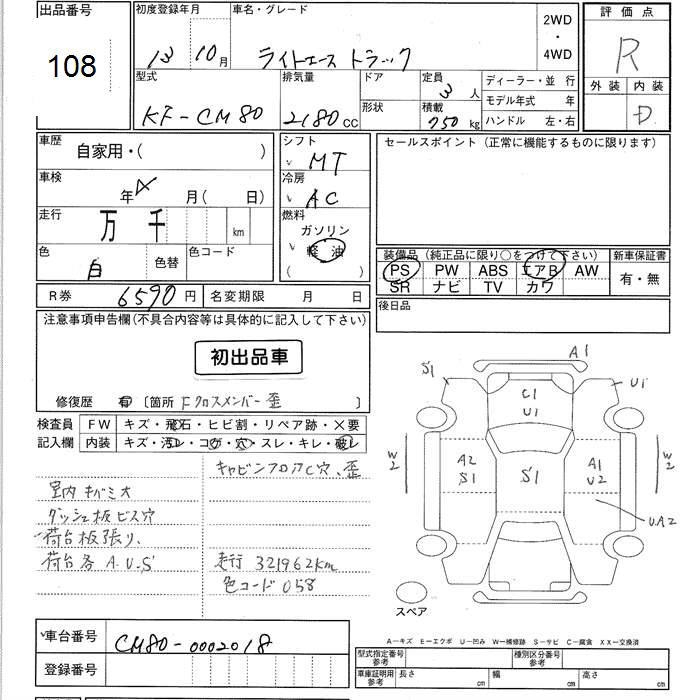 出品番号
108
初度登録年月
13 10月
車名・グレード
ライトエース トラック
2WD
・
4WD
評価点
R
外装 内装
D
型式
KF-CM80
排気量
2180cc
ドア
形状
定員
3人
積載
750kg
ディーラー・並 行
モデル年式 年
ハンドル 左・右
車歴
自家用・( )
車検
年 月( 日)
走行
万 千 km
色
白
色替
色コード
シフト
MT
冷房
AC
燃料
ガソリン
軽油
( )
セールスポイント(正常に機能するものに限ります)
装備品(純正品に限り○をつけて下さい)
PS PW ABS エアB AW
SR ナビ TV カワ
新車保証書
有・無
後日品
R券 6590円
名変期限 月 日
注意事項申告欄(不具合内容等は具体的に記入して下さい)
初出品車
修復歴 有 〔箇所 Fクロスメンバー歪 〕
検査員
記入欄
FW キズ・飛石・ヒビ割・リペア跡・×要
内装 キズ・汚レ・コゲ・穴・スレ・キレ・破レ
キャビンフロアC穴、歪
室内キバミ大
ダッシュ板ビス穴
荷台板張り、
荷台各A.U.S
走行 321962km
色コード058
車台番号
CM80-0002018
登録番号
A1
S1
U1
C1
U1
W2
A2
S1
S1
A1
U2
W2
UA2
スペア
A-キズ E-エクボ U-凹み W-補修跡 S-サビ C-腐食 XX-交換済
型式指定番号
参考
種別区分番号
参考
車庫証明用
参考
長さ cm
幅 cm
高さ cm